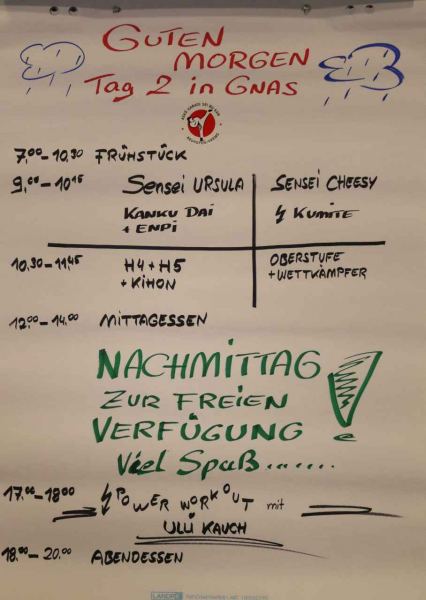 GUTEN
MORGEN
Tag 2 in GNAS
7.00-10.30 FRÜHSTÜCK
9.00-10.15 Sensei URSULA SENSEI CHEESY
KANKU DAI KUMITE
+ ENPI
10.30-11.45 H4+H5 OBERSTUFE
+ KIHON +WETTKÄMPFER
12.00-14.00 MITTAGESSEN
NACHMITTAG
ZUR FREIEN
VERFÜGUNG !
Viel Spaß.......
17.00-18.00 POWER WORKOUT mit
ULLI KAUCH
18.00-20.00 ABENDESSEN